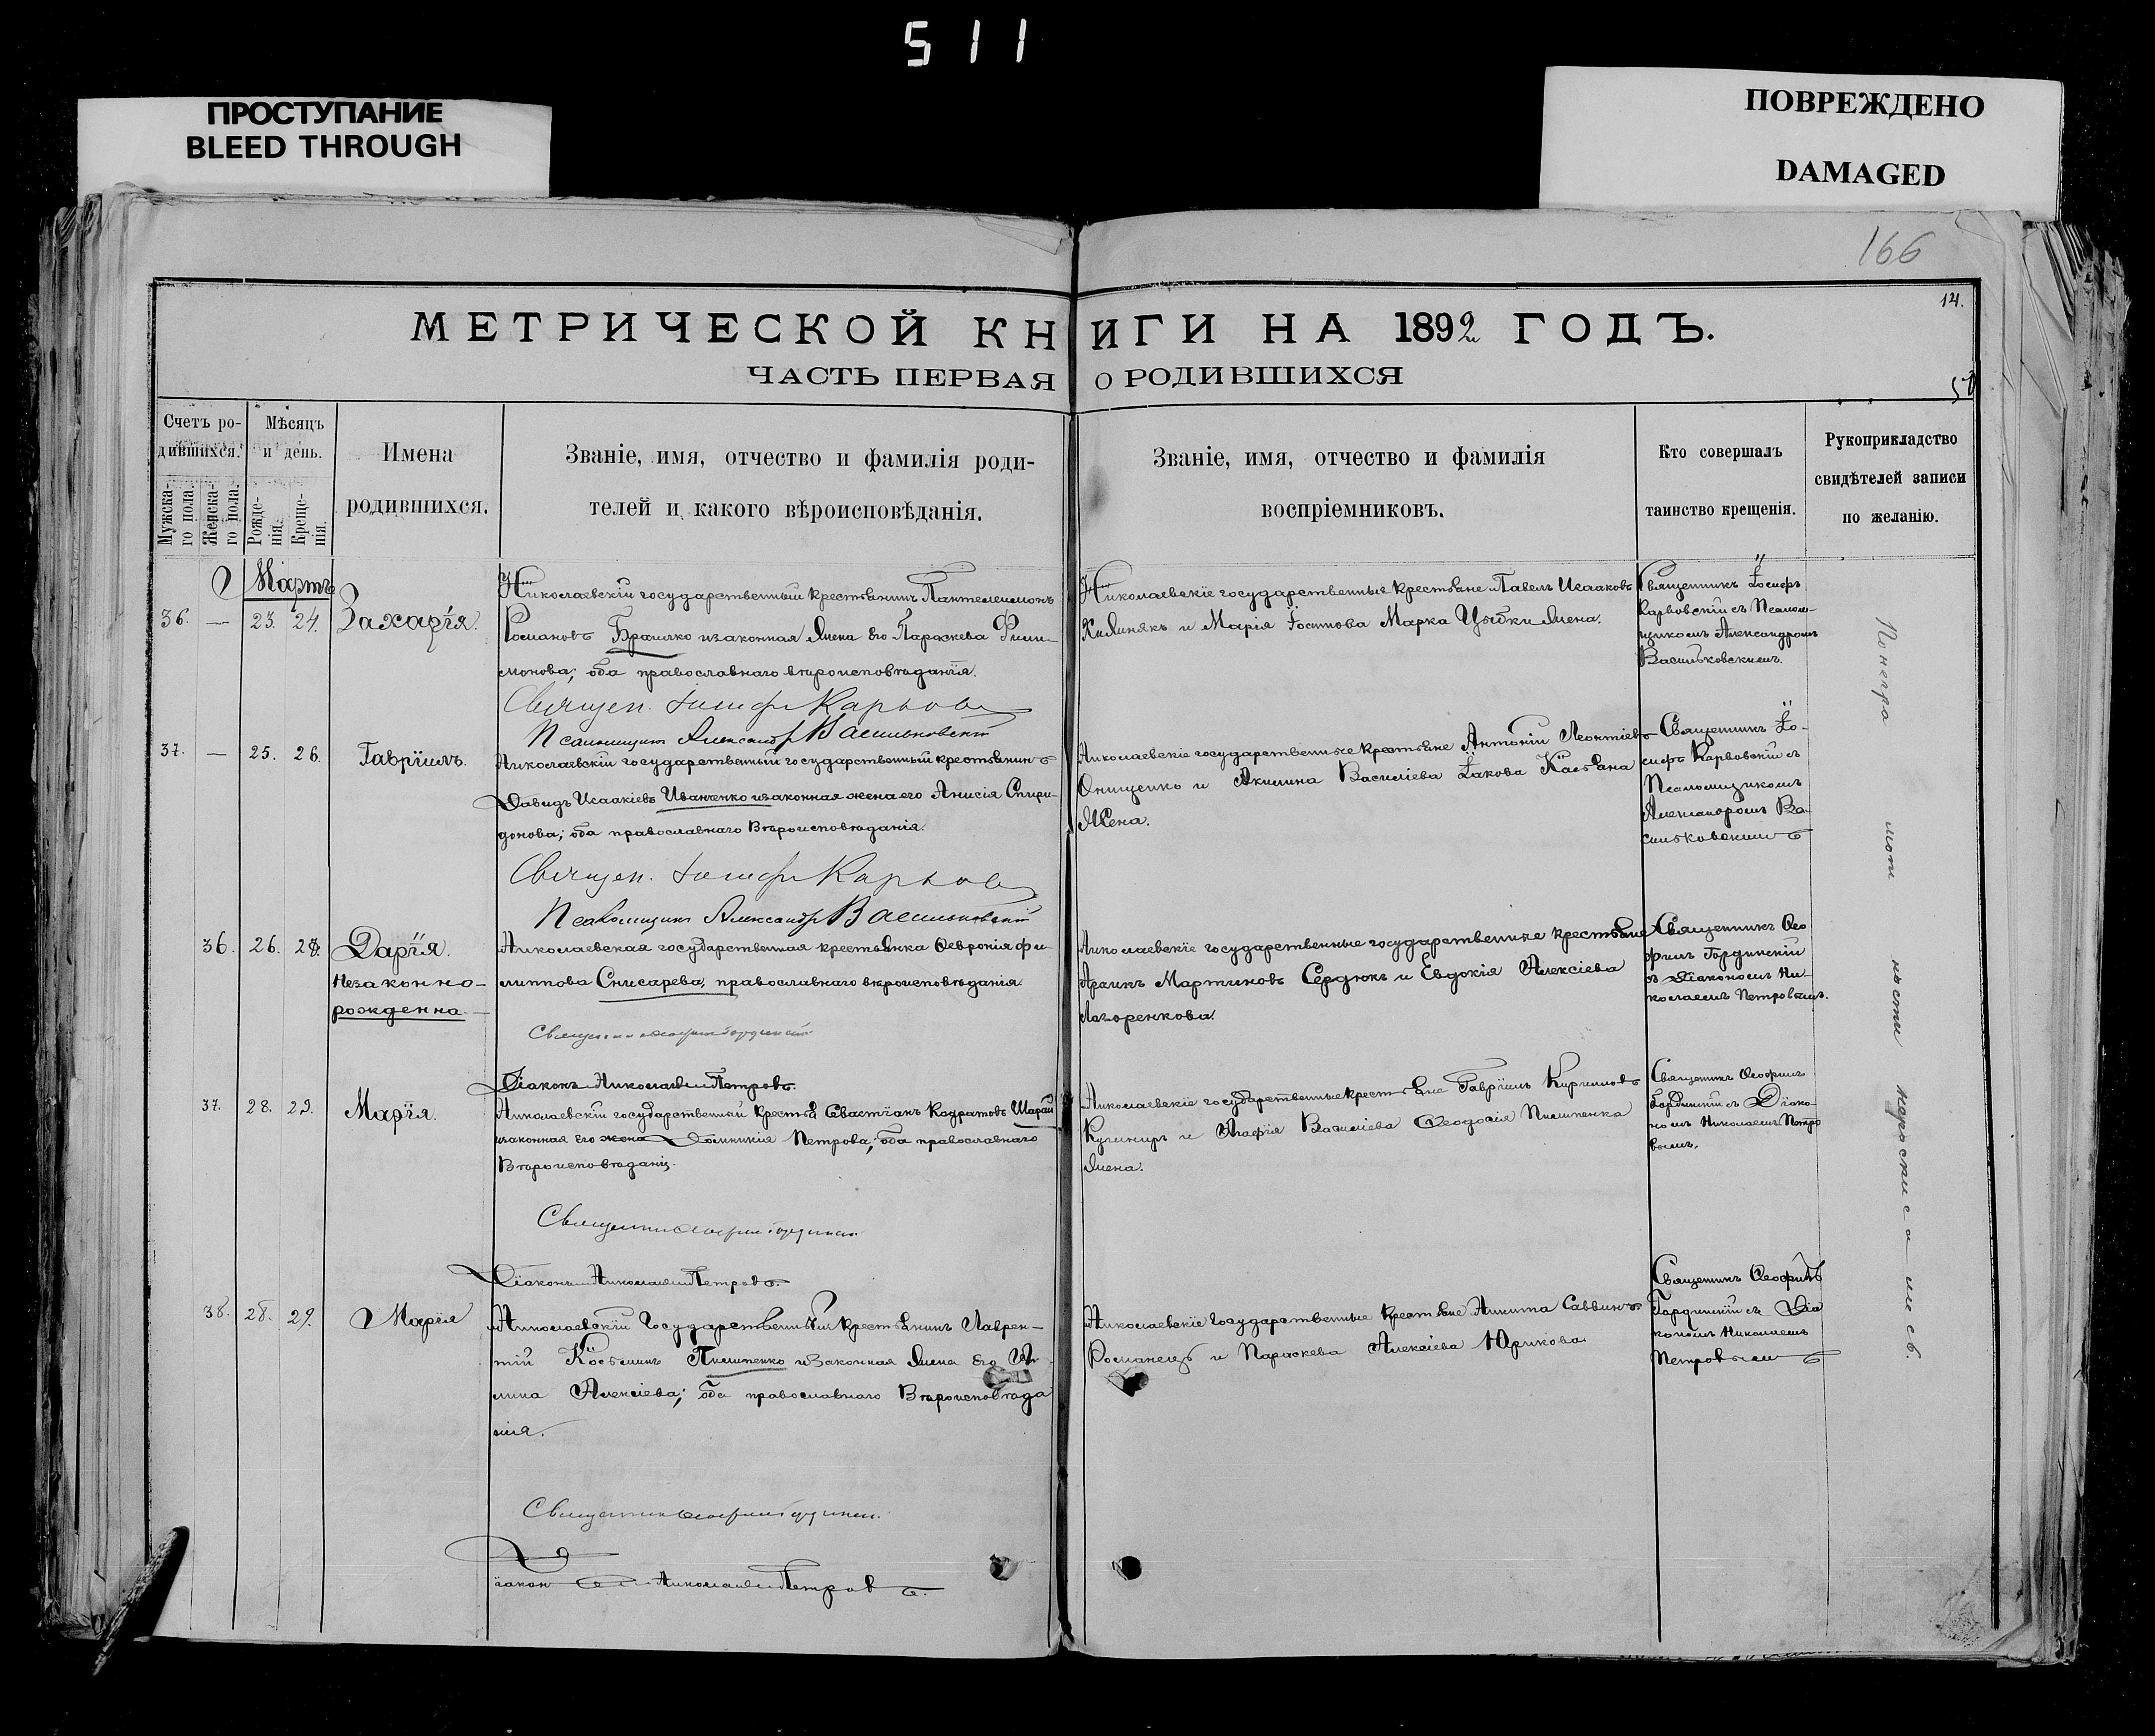 511
ПРОСТУПАНИЕ
BLEED THROUGH
ПОВРЕЖДЕНО
DAMAGED
166
14.
МЕТРИЧЕСКОЙ КНИГИ НА 1892 ГОДЪ.
ЧАСТЬ ПЕРВАЯ О РОДИВШИХСЯ
50
Счетъ ро-
дившихся.
Мужска-
го пола.
Женска-
го пола.
Мѣсяцъ
и день.
Рожде-
нія.
Креще-
нія.
Имена
родившихся.
Званіе, имя, отчество и фамилія роди-
телей и какого вѣроисповѣданія.
Званіе, имя, отчество и фамилія
воспріемниковъ.
Кто совершалъ
таинство крещенія.
Рукоприкладство
свидѣтелей записи
по желанію.
Мартъ
36. — 23. 24. Захарїя.
Николаевскій государственный крестьянинъ Пантелеимонъ
Романовъ Браилко и законная жена его Параскева Фили-
монова; оба православнаго вѣроисповѣданія.
Священ. Іосифъ Карвов
Псаломщикъ Александръ Васильковскій
Николаевскіе государственные крестьяне Павелъ Исааковъ
Хижнякъ и Марія Іосипова Марка Цыбки жена.
Священникъ Іосифъ
Карвовскій съ Псалом-
щикомъ Александромъ
Васильковскимъ.
37. — 25. 26. Гаврїилъ.
Николаевскій государственный государственный крестьянинъ
Давидъ Исаакіевъ Иванченко и законная жена его Анисія Спири-
донова; оба православнаго вѣроисповѣданія.
Священ. Іосифъ Карвов
Псаломщикъ Александръ Васильковскій
Николаевскіе государственные крестьяне Антоній Леонтіевъ
Онищенко и Акилина Василіева Іакова Касьяна
жена.
Священникъ Іо-
сифъ Карвовскій съ
Псаломщикомъ
Александромъ Ва-
сильковскимъ
36. 26. 28. Дарїя.
Незаконно-
рожденна.
Николаевская государственная крестьянка Февронія Фи-
липпова Снисарева, православнаго вѣроисповѣданія.
Діаконъ Николай Петровъ.
Николаевскіе государственные государственные крестьяне
Мартиновъ Сердюкъ и Евдокія Алексіева
Лазоренкова.
Священникъ Ѳео
филъ Гординскій
съ Діакономъ Ни-
колаемъ Петровымъ.
37. 28. 29. Марїя.
Николаевскій государственный крестья Севастїанъ Кодратовъ Шарай
законная его жена Домникія Петрова; оба православнаго
Вѣроисповѣданія.
Діаконъ Николай Петровъ.
Николаевскіе государственные крестьяне Гаврїилъ Кириловъ
Кушниръ и Агафїя Василіева Ѳеодосія Пилипенка
жена.
Священникъ Ѳеофилъ
Гординскій съ Діако-
номъ Николаемъ Петро
вымъ.
38. 28. 29. Марїя
Николаевскій Государственный крестьянинъ Лаврен-
тій Косьминъ Пилипенко и Законная жена его
Алексіева; оба православнаго Вѣроисповѣда
нія.
Діаконъ Николай Петровъ.
Николаевскіе государственные крестьяне Никита Саввинъ
Романецъ и Параскева Алексіева Юрикова
Священникъ Ѳеофилъ
Гординскій съ Діа
кономъ Николаемъ
Петровымъ